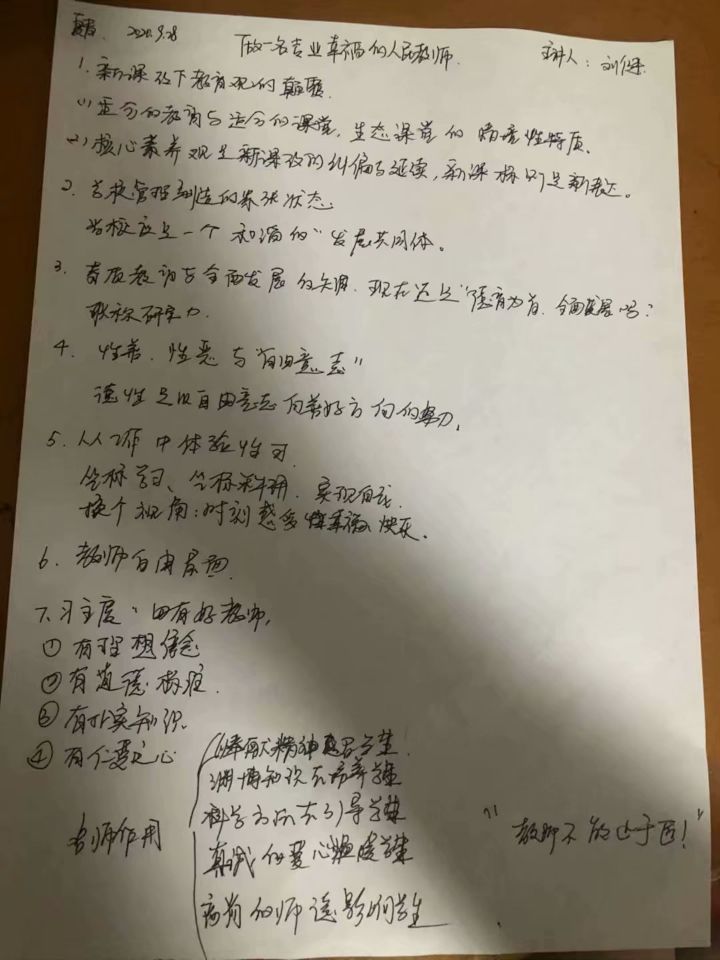 2020.9.28 做一名专业幸福的人民教师. 主讲人：刘
1. 新课改下教育观的
(1) 适合的教育与适合的课堂, 生态课堂的 情境性特质。
(2) 核心素养观是新课改的纠偏与延续, 新课标则是新表达。
2. 学校管理制造的紧张状态
学校应是一个和谐的“发展共同体。
3. 素质教育与全面发展的失调. 现在还是“德育为首. 全面发展吗？
研究力.
4. 性善. 性恶与“自由意志”
德性是以自由意志向着好方向的努力.
5. 从工作中体验性可
坐标学习、坐标 实现自我.
换个视角：时刻感受幸福快乐。
6. 教师自由
7. 习主席“四有好老师.
① 有理想信念
② 有道德
③ 有扎实知识.
④ 有仁爱之心
名师作用
精神 学生.
渊博知识去培养学生
科学方法去引导学生
真诚的爱心温暖学生
高尚的师德影响学生
“教师不做